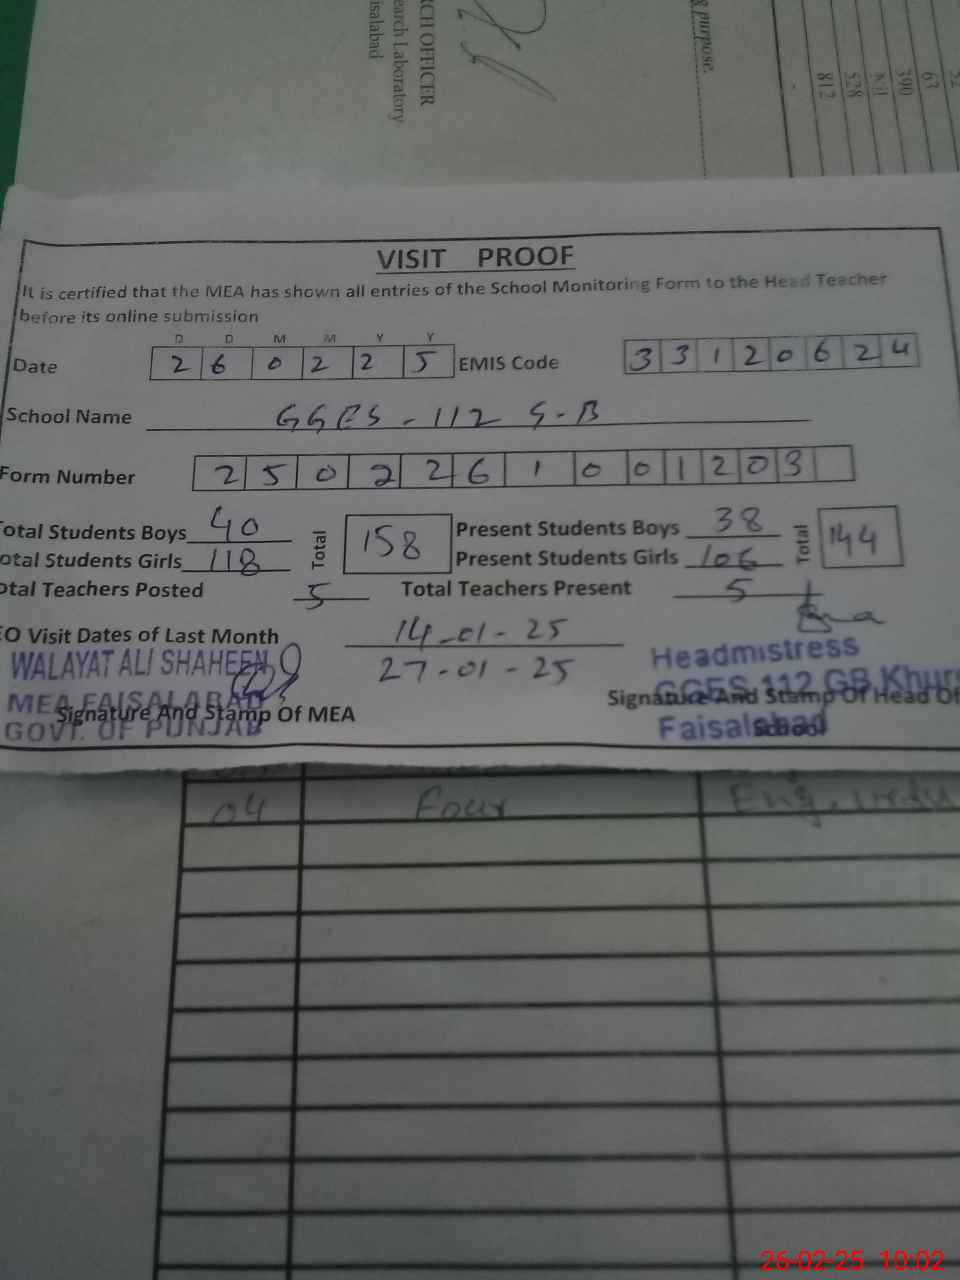 RCH OFFICER
earch Laboratory
isalabad
& purpose.
812
528
Nil
390
63
52
VISIT PROOF
It is certified that the MEA has shown all entries of the School Monitoring Form to the Head Teacher
before its online submission
D D M M Y Y
Date 2 6 0 2 2 5 EMIS Code 3 3 1 2 0 6 2 4
School Name GGES - 112 G-B
Form Number 2 5 0 2 2 6 1 0 0 1 2 0 3
otal Students Boys 40 Total 158 Present Students Boys 38 Total 144
otal Students Girls 118 Present Students Girls 106
otal Teachers Posted 5 Total Teachers Present 5
EO Visit Dates of Last Month 14-01-25
27-01-25
WALAYAT ALI SHAHEEN
MEA FAISALABAD
GOVT. OF PUNJAB
Signature And Stamp Of MEA
Headmistress
GGES 112 GB Khur
Faisalabad
Signature And Stamp Of Head Of
School
04 Four Eng, Urdu
26-02-25 10:02